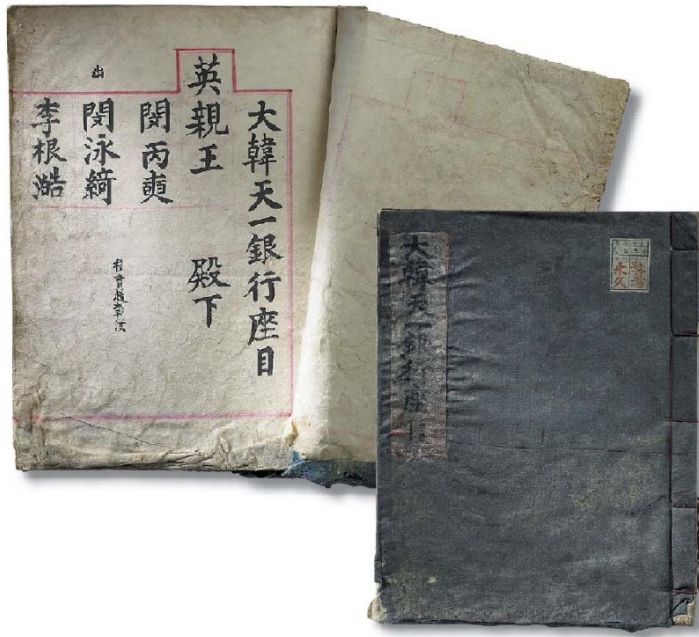 大韓天一銀行座目
英親王 殿下
閔丙奭
閔泳綺
出
李根澔
大韓天一銀行座目
永久